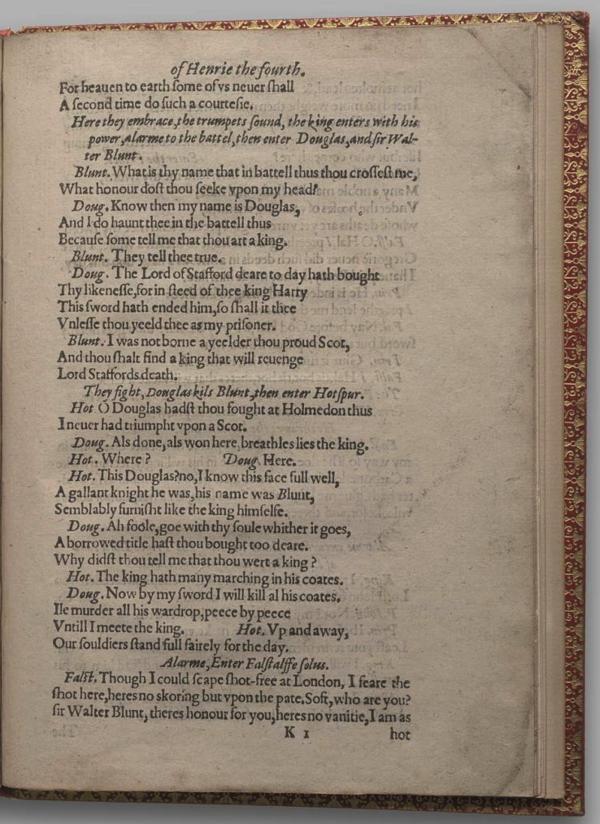 of Henrie the fourth.
For heauen to earth ſome of vs neuer ſhall
A ſecond time do ſuch a courteſie.
Here they embrace, the trumpets ſound, the king enters with his
power, alarme to the battel, then enter Douglas, and ſir Wal-
ter Blunt.
Blunt. What is thy name that in battell thus thou croſſeſt me,
What honour doſt thou ſeeke vpon my head?
Doug. Know then my name is Douglas,
And I do haunt thee in the battell thus
Becauſe ſome tell me that thou art a king.
Blunt. They tell thee true.
Doug. The Lord of Stafford deare to day hath bought
Thy likeneſſe, for in ſteed of thee king Harry
This ſword hath ended him, ſo ſhall it thee
Vnleſſe thou yeeld thee as my priſoner.
Blunt. I was not borne a yeelder thou proud Scot,
And thou ſhalt find a king that will reuenge
Lord Staffords death.
They fight, Douglas kils Blunt, then enter Hotſpur.
Hot O Douglas hadſt thou fought at Holmedon thus
I neuer had triumpht vpon a Scot.
Doug. Als done, als won here, breathles lies the king.
Hot. Where? Doug. Here.
Hot. This Douglas? no, I know this face full well,
A gallant knight he was, his name was Blunt,
Semblably furniſht like the king himſelfe.
Doug. Ah foole, goe with thy ſoule whither it goes,
A borrowed title haſt thou bought too deare.
Why didſt thou tell me that thou wert a king?
Hot. The king hath many marching in his coates.
Doug. Now by my ſword I will kill al his coates.
Ile murder all his wardrop, peece by peece
Vntill I meete the king. Hot. Vp and away,
Our ſouldiers ſtand full fairely for the day.
Alarme, Enter Falſtalffe ſolus.
Falſt. Though I could ſcape ſhot-free at London, I feare the
ſhot here, heres no skoring but vpon the pate. Soft, who are you?
ſir Walter Blunt, theres honour for you, heres no vanitie, I am as
K 1 hot